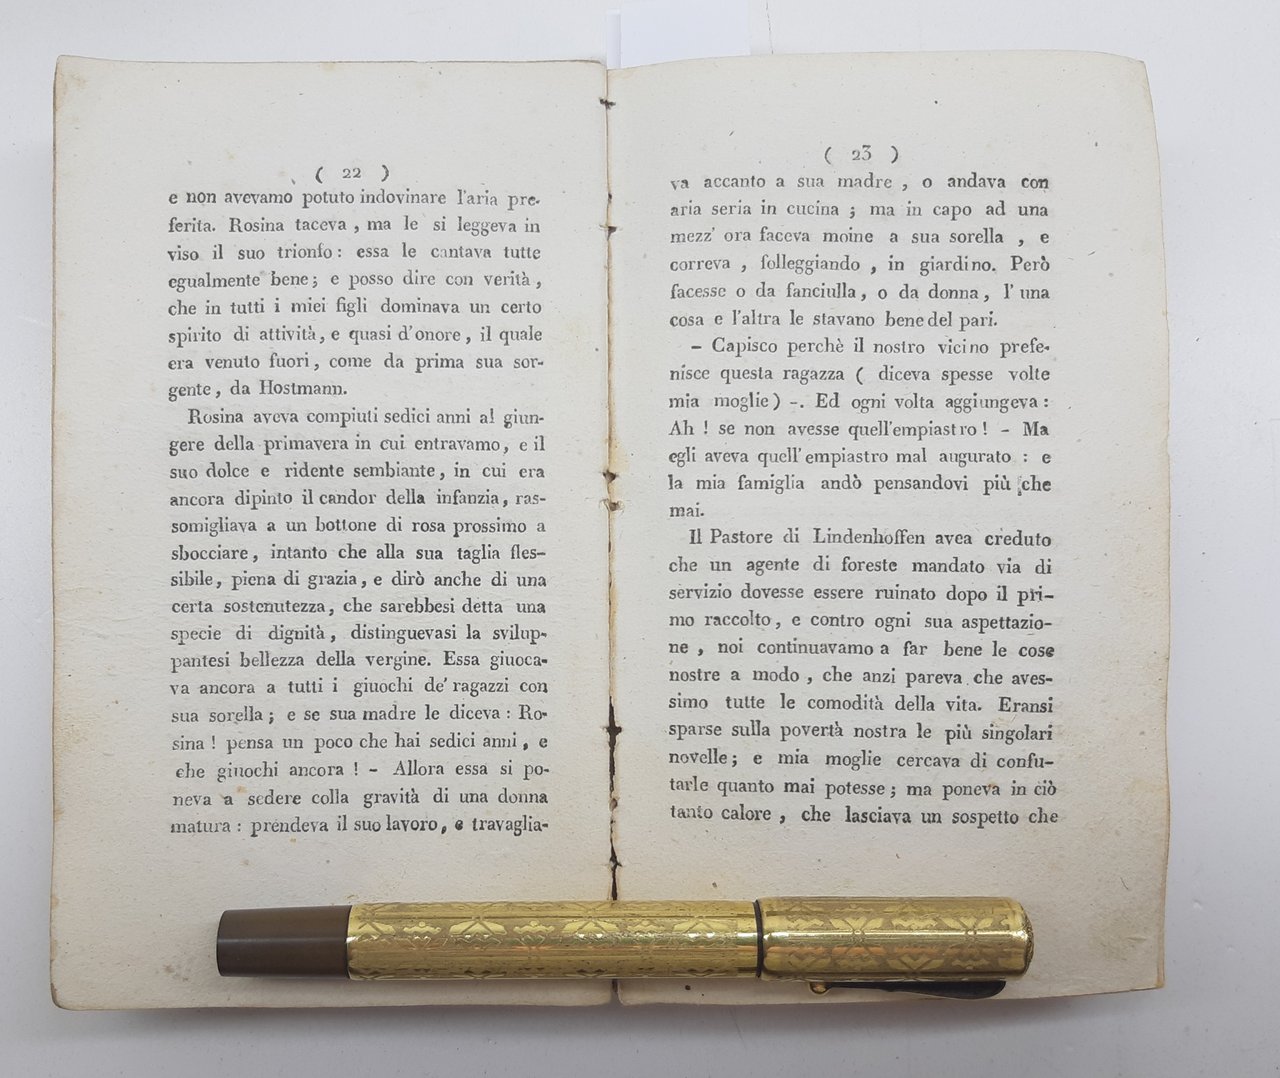 ( 22 )
e non avevamo potuto indovinare l'aria pre-
ferita. Rosina taceva , ma le si leggeva in
viso il suo trionfo : essa le cantava tutte
egualmente bene ; e posso dire con verità ,
che in tutti i miei figli dominava un certo
spirito di attività, e quasi d'onore , il quale
era venuto fuori , come da prima sua sor-
gente , da Hostmann.
Rosina aveva compiuti sedici anni al giun-
gere della primavera in cui entravamo, e il
suo dolce e ridente sembiante, in cui era
ancora dipinto il candor della infanzia, ras-
somigliava a un bottone di rosa prossimo a
sbocciare, intanto che alla sua taglia fles-
sibile, piena di grazia, e dirò anche di una
certa sostenutezza, che sarebbesi detta una
specie di dignità, distinguevasi la svilup-
pantesi bellezza della vergine. Essa giuoca-
va ancora a tutti i giuochi de' ragazzi con
sua sorella ; e se sua madre le diceva : Ro-
sina ! pensa un poco che hai sedici anni , e
che giuochi ancora ! - Allora essa si po-
neva a sedere colla gravità di una donna
matura : prendeva il suo lavoro, e travaglia-
( 23 )
va accanto a sua madre , o andava con
aria seria in cucina ; ma in capo ad una
mezz' ora faceva moine a sua sorella , e
correva , folleggiando , in giardino. Però
facesse o da fanciulla, o da donna, l' una
cosa e l'altra le stavano bene del pari.
- Capisco perchè il nostro vicino prefe-
nisce questa ragazza ( diceva spesse volte
mia moglie) -. Ed ogni volta aggiungeva :
Ah ! se non avesse quell'empiastro ! - Ma
egli aveva quell' empiastro mal augurato : e
la mia famiglia andò pensandovi più che
mai.
Il Pastore di Lindenhoffen avea creduto
che un agente di foreste mandato via di
servizio dovesse essere ruinato dopo il pri-
mo raccolto, e contro ogni sua aspettazio-
ne , noi continuavamo a far bene le cose
nostre a modo , che anzi pareva che aves-
simo tutte le comodità della vita. Eransi
sparse sulla povertà nostra le più singolari
novelle ; e mia moglie cercava di confu-
tarle quanto mai potesse ; ma poneva in ciò
tanto calore , che lasciava un sospetto che